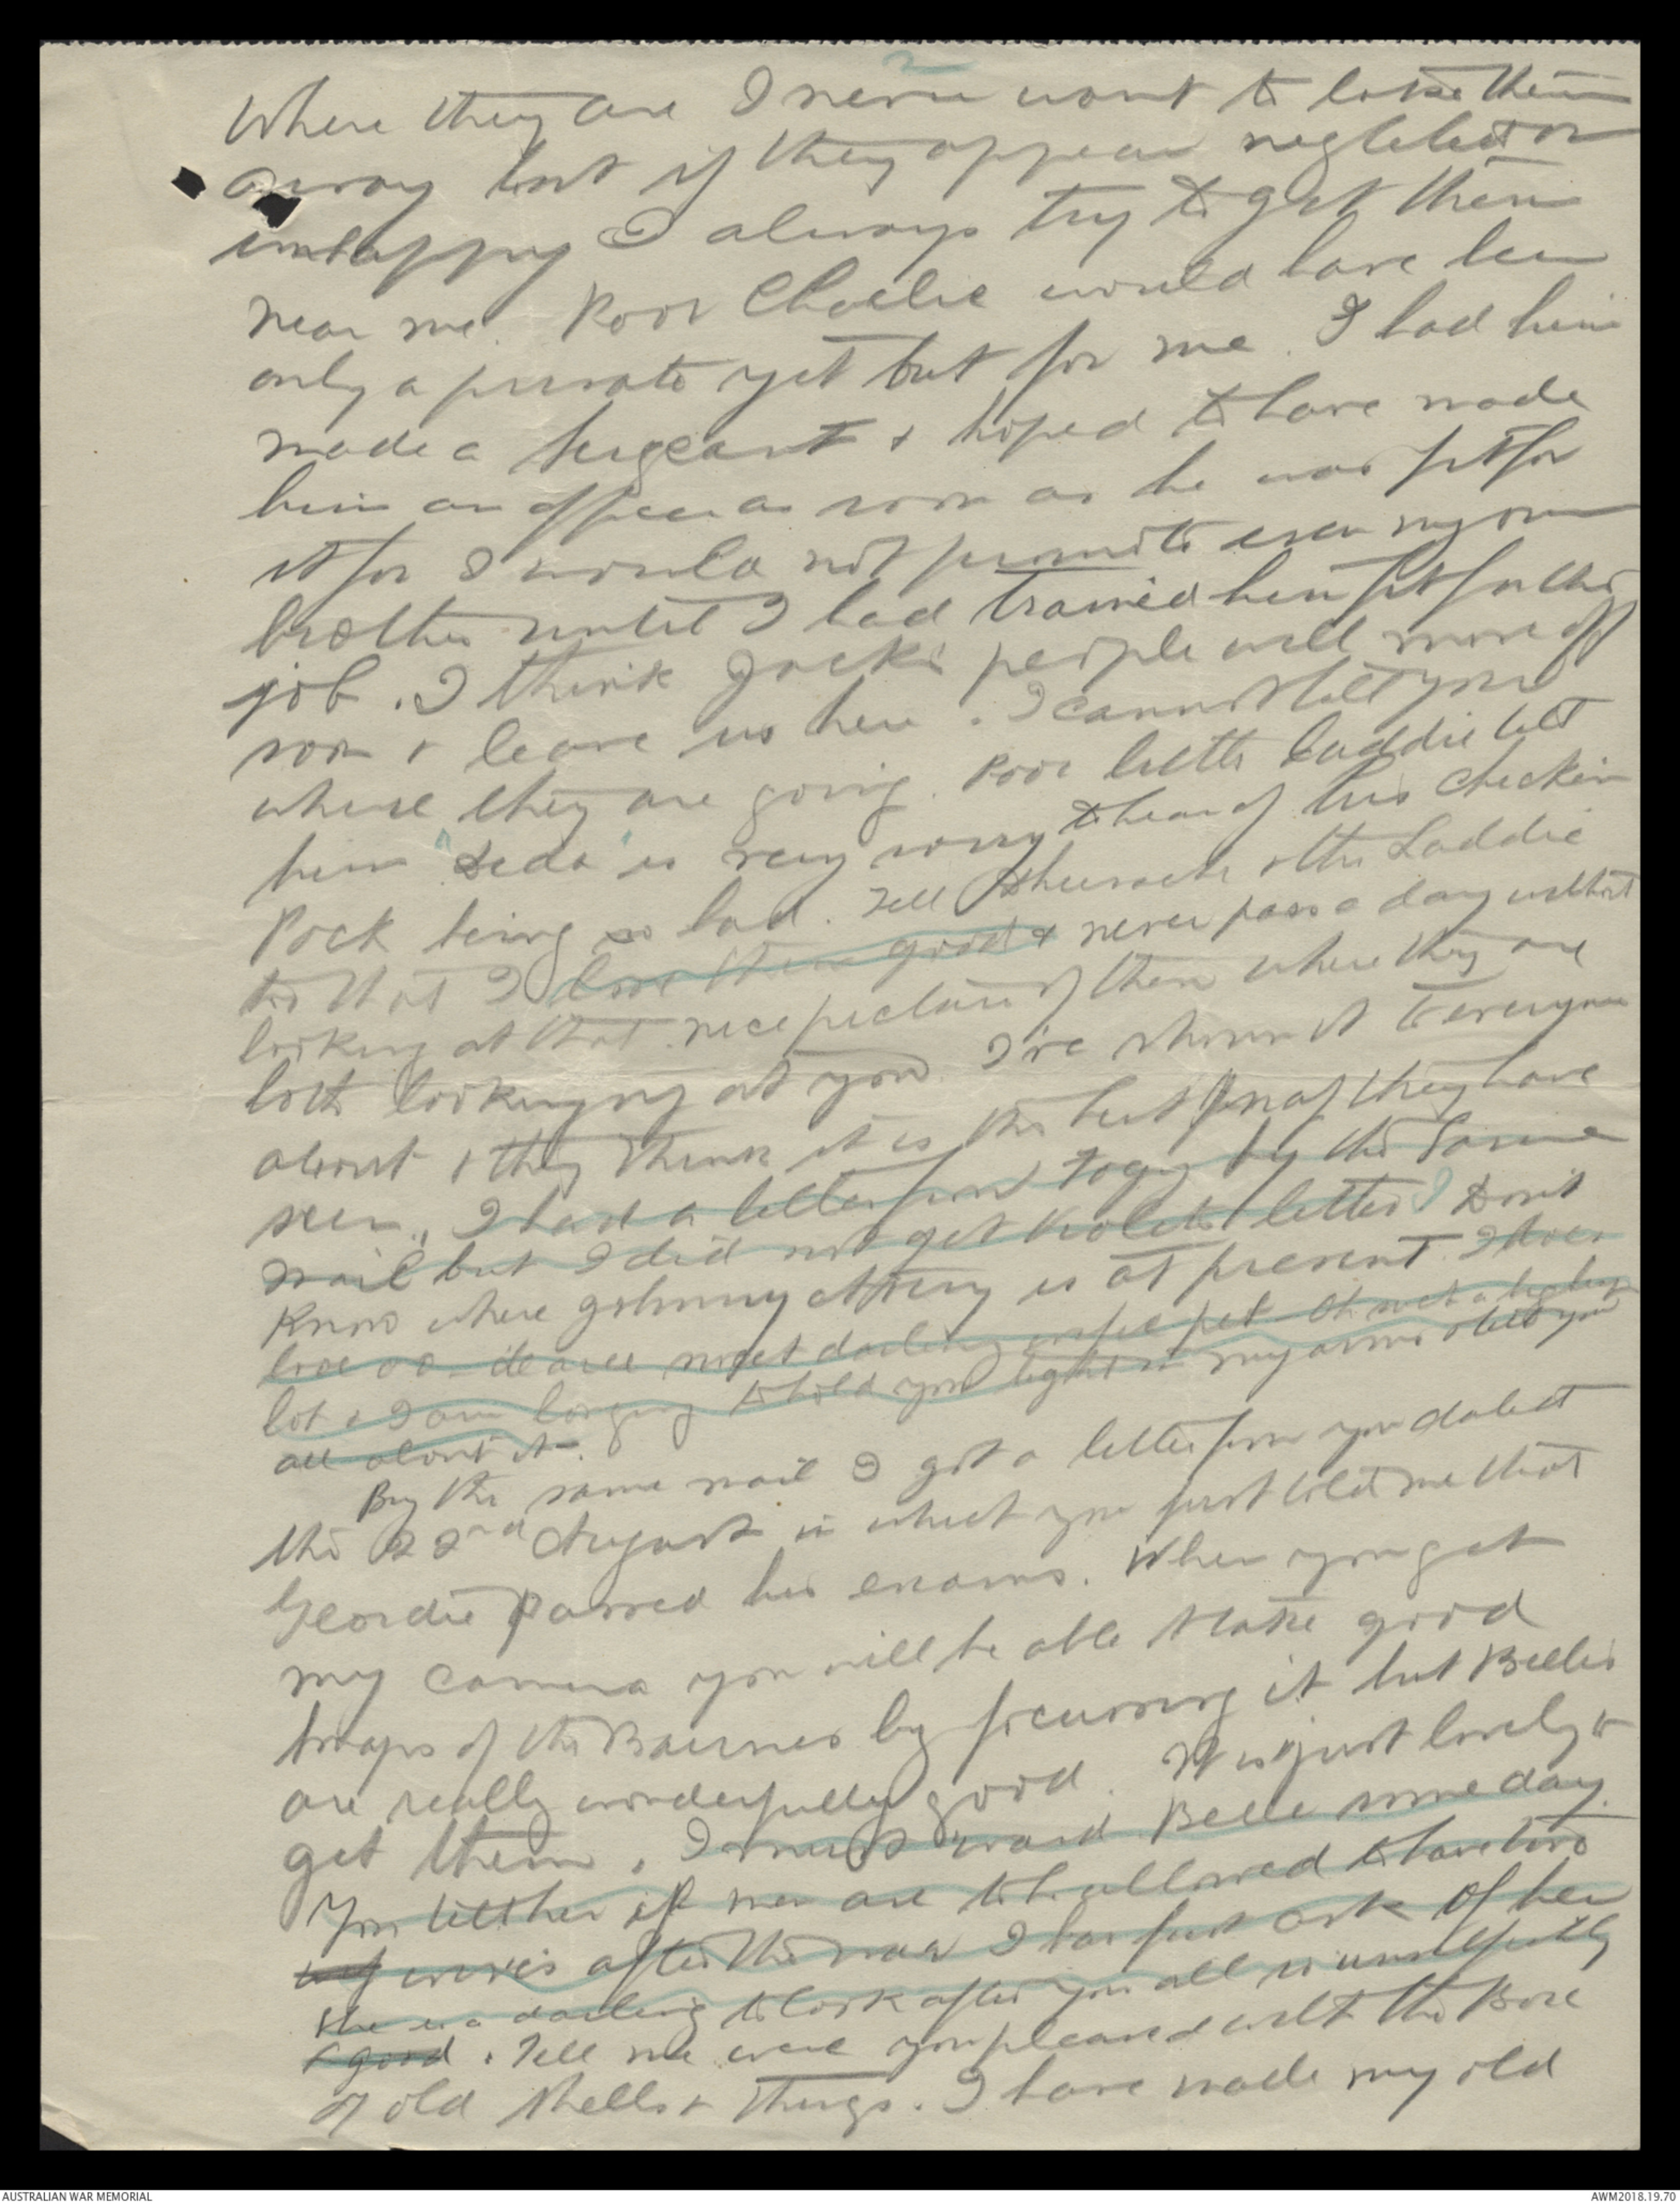 2
Where they are I never want to take them
away but if they appear neglected or
unhappy I always try to get them
near me. Poor Charlie would have been
only a private yet but for me. I had him
made a Sergeant & hoped to have made
him an officer as soon as he was fit for
it for I would not promote even my own
brother until I had trained him fit for the
job. I think Jack's people will move off
soon & leave us here. I cannot tell you
where they are going. Poor little Laddie tell
him "Deda" is very sorry to hear of his chicken
Pock being so bad. Tell other Laddie
too that I love them good & never pass a day without
looking at that nice picture of them where they are
both looking at you. I've shown it to everyone
about & they think it is the best snap they have
seen. I had a letter from by the same
mail but I did not get Violet's letter. Don't
know where Johnny is at present. I does
love oo deare sweet darling wifie pet oh such a
lot & I am longing to hold you tight in my arms & tell you
all about it.
By the same mail I got a letter from you dated
the 22nd August in which you first told me that
Geordie passed his exams. When you get
my camera you will be able to take good
snaps of the Bairnies by focussing it but Belle's
are really wonderfully good. It is just lovely to
get them. I must reward Belle some day.
You tell her if men are to be allowed to have two
wives after the war I has first ask of her
She is a darling to look after you all so unselfishly
& good. Tell me were you pleased with the Box
of old shells & things. I have made my old
AUSTRALIAN WAR MEMORIAL
AWM2018.19.70